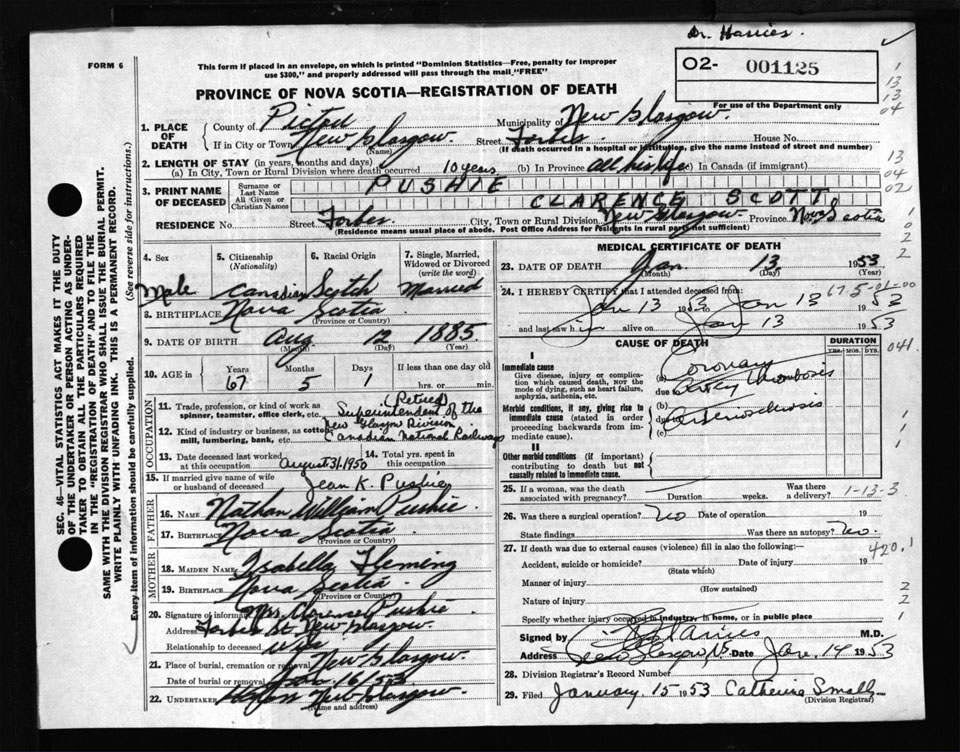 Dr. Harries.
FORM 6
This form if placed in an envelope, on which is printed "Dominion Statistics—Free, penalty for improper
use $300," and properly addressed will pass through the mail "FREE"
02- 001125
For use of the Department only
PROVINCE OF NOVA SCOTIA—REGISTRATION OF DEATH
1. PLACE OF DEATH
County of Pictou Municipality of New Glasgow.
If in City or Town New Glasgow. Street Forbes House No.
(Name) (If death occurred in a hospital or institution, give the name instead of street and number)
2. LENGTH OF STAY (in years, months and days)
(a) In City, Town or Rural Division where death occurred 10 years (b) In Province All his life (c) In Canada (if immigrant)
3. PRINT NAME OF DECEASED
Surname or Last Name PUSHIE
All Given or Christian Names CLARENCE SCOTT
RESIDENCE No. Street Forbes City, Town or Rural Division New Glasgow. Province Nova Scotia
(Residence means usual place of abode. Post Office Address for residents in rural parts not sufficient)
4. Sex Male
5. Citizenship (Nationality) Canadian
6. Racial Origin Scotch
7. Single, Married, Widowed or Divorced (write the word) Married
8. BIRTHPLACE Nova Scotia
(Province or Country)
9. DATE OF BIRTH Aug 12 1885
(Month) (Day) (Year)
10. AGE in Years 67 Months 5 Days 1 If less than one day old hrs. or min.
OCCUPATION
11. Trade, profession, or kind of work as spinner, teamster, office clerk, etc. (Retired) Superintendent of the
12. Kind of industry or business, as cotton mill, lumbering, bank, etc. New Glasgow Division Canadian National Railways
13. Date deceased last worked at this occupation August 31, 1950
14. Total yrs. spent in this occupation
15. If married give name of wife or husband of deceased Jean K. Pushie
FATHER
16. Name Nathan William Pushie.
17. Birthplace Nova Scotia
(Province or Country)
MOTHER
18. Maiden Name Isabella Fleming
19. Birthplace Nova Scotia
(Province or Country)
20. Signature of informant Mrs. Clarence Pushie
Address Forbes St. New Glasgow.
Relationship to deceased Wife
21. Place of burial, cremation or removal New Glasgow.
Date of burial or removal 16/53
22. UNDERTAKER New Glasgow.
(Name and address)
MEDICAL CERTIFICATE OF DEATH
23. DATE OF DEATH Jan. 13 1953
(Month) (Day) (Year)
24. I HEREBY CERTIFY that I attended deceased from
Jan 13 1953 to Jan 13 1953
and last saw him alive on Jan 13 1953
CAUSE OF DEATH
DURATION
YRS. MOS. DYS.
I
Immediate cause
Give disease, injury or complication which caused death, NOT the mode of dying, such as heart failure, asphyxia, asthenia, etc.
(a) Coronary
due to Artery thrombosis
Morbid conditions, if any, giving rise to immediate cause (stated in order proceeding backwards from immediate cause).
(b)
(c) Arteriosclerosis
II
Other morbid conditions (if important) contributing to death but not causally related to immediate cause.
25. If a woman, was the death associated with pregnancy? Duration weeks. Was there a delivery?
1-13-3
26. Was there a surgical operation? No Date of operation 19
State findings Was there an autopsy? No.
27. If death was due to external causes (violence) fill in also the following:— 420.1
Accident, suicide or homicide? Date of injury 19
(State which)
Manner of injury
(How sustained)
Nature of injury
Specify whether injury occurred in industry, in home, or in public place
Signed by Harries M.D.
Address New Glasgow, N.S. Date Jan. 14 1953
28. Division Registrar's Record Number
29. Filed January 15 1953 Catherine Smalls
(Division Registrar)
SEC. 46—VITAL STATISTICS ACT MAKES IT THE DUTY
OF THE UNDERTAKER OR PERSON ACTING AS UNDER-
TAKER TO OBTAIN ALL THE PARTICULARS REQUIRED
IN THE "REGISTRATION OF DEATH" AND TO FILE THE
SAME WITH THE DIVISION REGISTRAR WHO SHALL ISSUE THE BURIAL PERMIT.
WRITE PLAINLY WITH UNFADING INK. THIS IS A PERMANENT RECORD.
Every item of information should be carefully supplied. (See reverse side for instructions.)